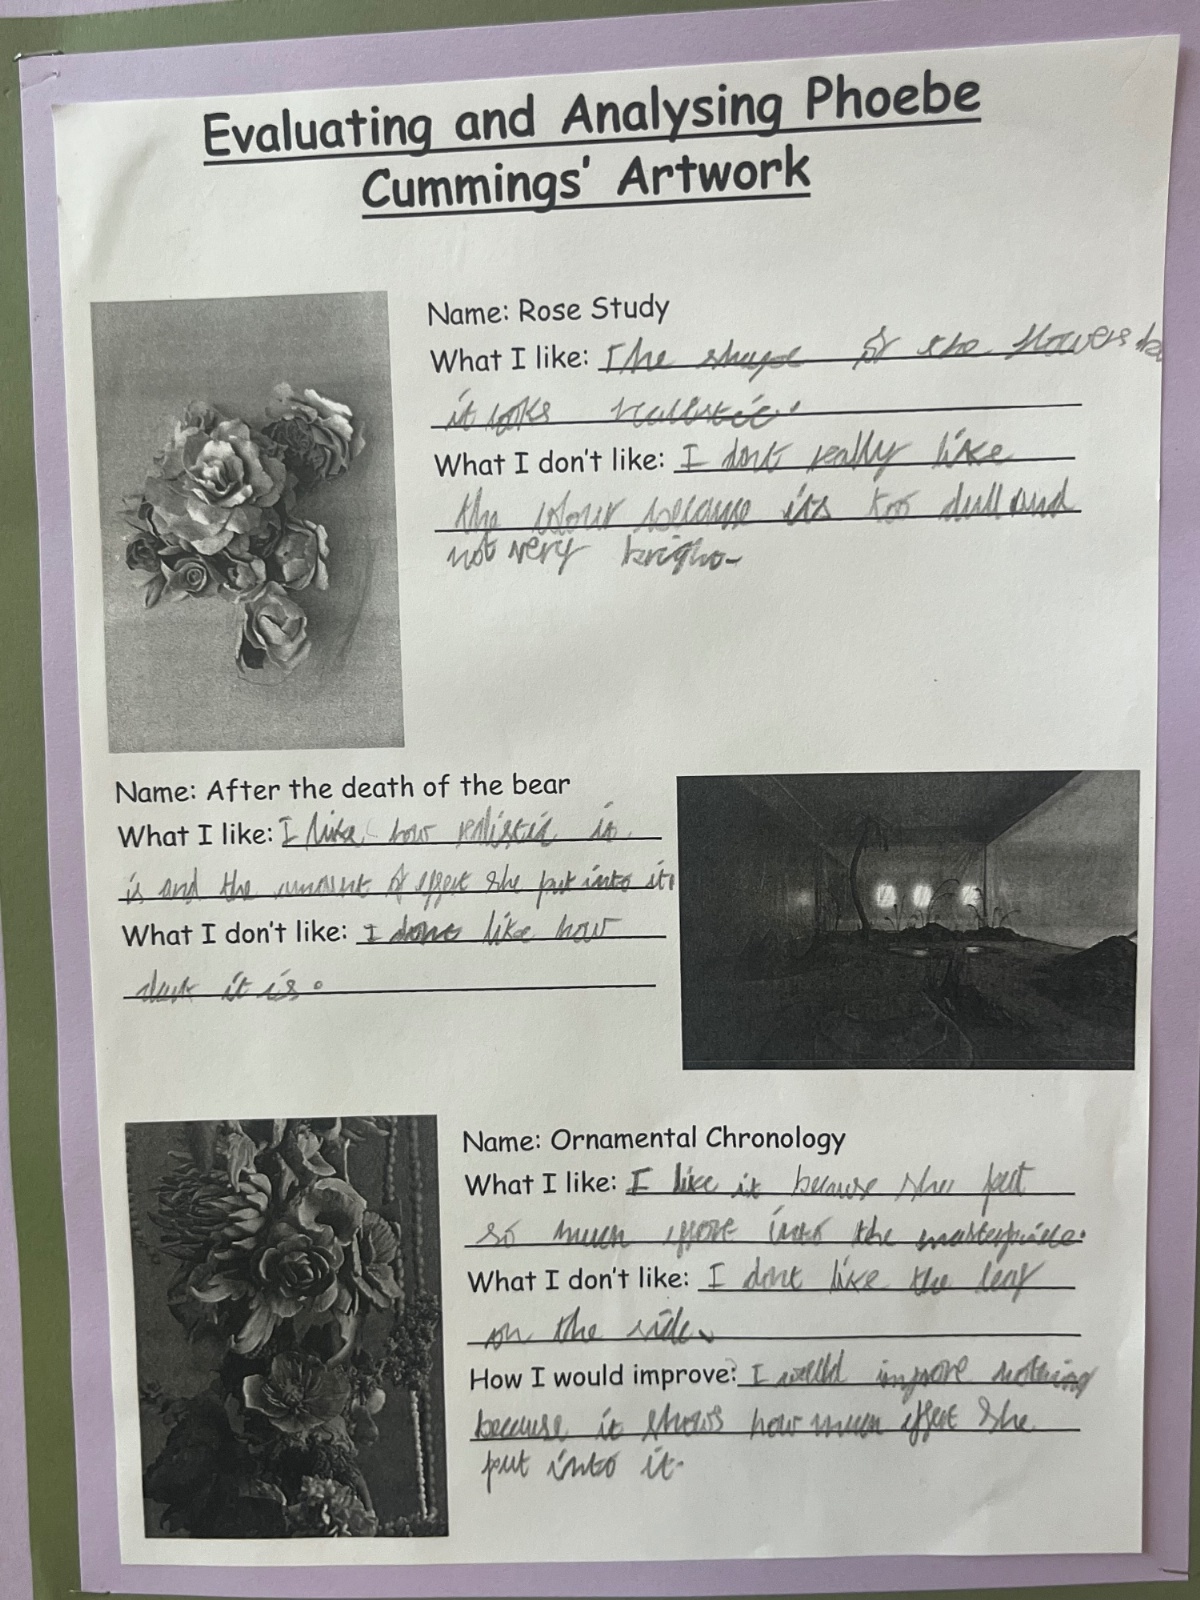 Evaluating and Analysing Phoebe
Cummings' Artwork
Name: Rose Study
What I like: The shape of the flowers
it looks realistic.
What I don't like: I dont really like
the colour because its too dull and
not very
Name: After the death of the bear
What I like: I like how realistic
is and the amount of effect she put into it.
What I don't like: I dont like how
dark it is.
Name: Ornamental Chronology
What I like: I like it because she put
so much effort into the masterpiece.
What I don't like: I dont like the leaf
on the side.
How I would improve: I would improve nothing
because it shows how much effect she
put into it.